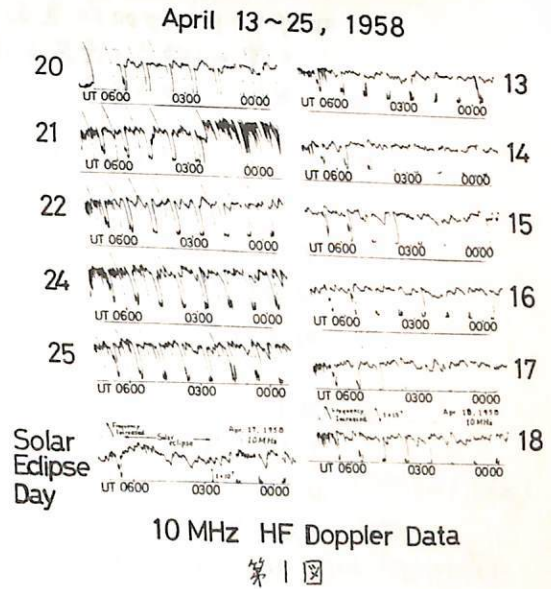 April 13~25, 1958
20
UT 0600 0300 0000
21
UT 0600 0300 0000
22
UT 0600 0300 0000
24
UT 0600 0300 0000
25
UT 0600 0300 0000
Frequency Increased
Solar eclipse
Apr. 17, 1958
10 MHz
Solar
Eclipse
Day
UT 0600 0300 0000
13
UT 0600 0300 0000
14
UT 0600 0300 0000
15
UT 0600 0300 0000
16
UT 0600 0300 0000
17
UT 0600 0300 0000
Frequency Increased
Apr. 18, 1958
10 MHz
18
UT 0600 0300 0000
10 MHz HF Doppler Data
第1図